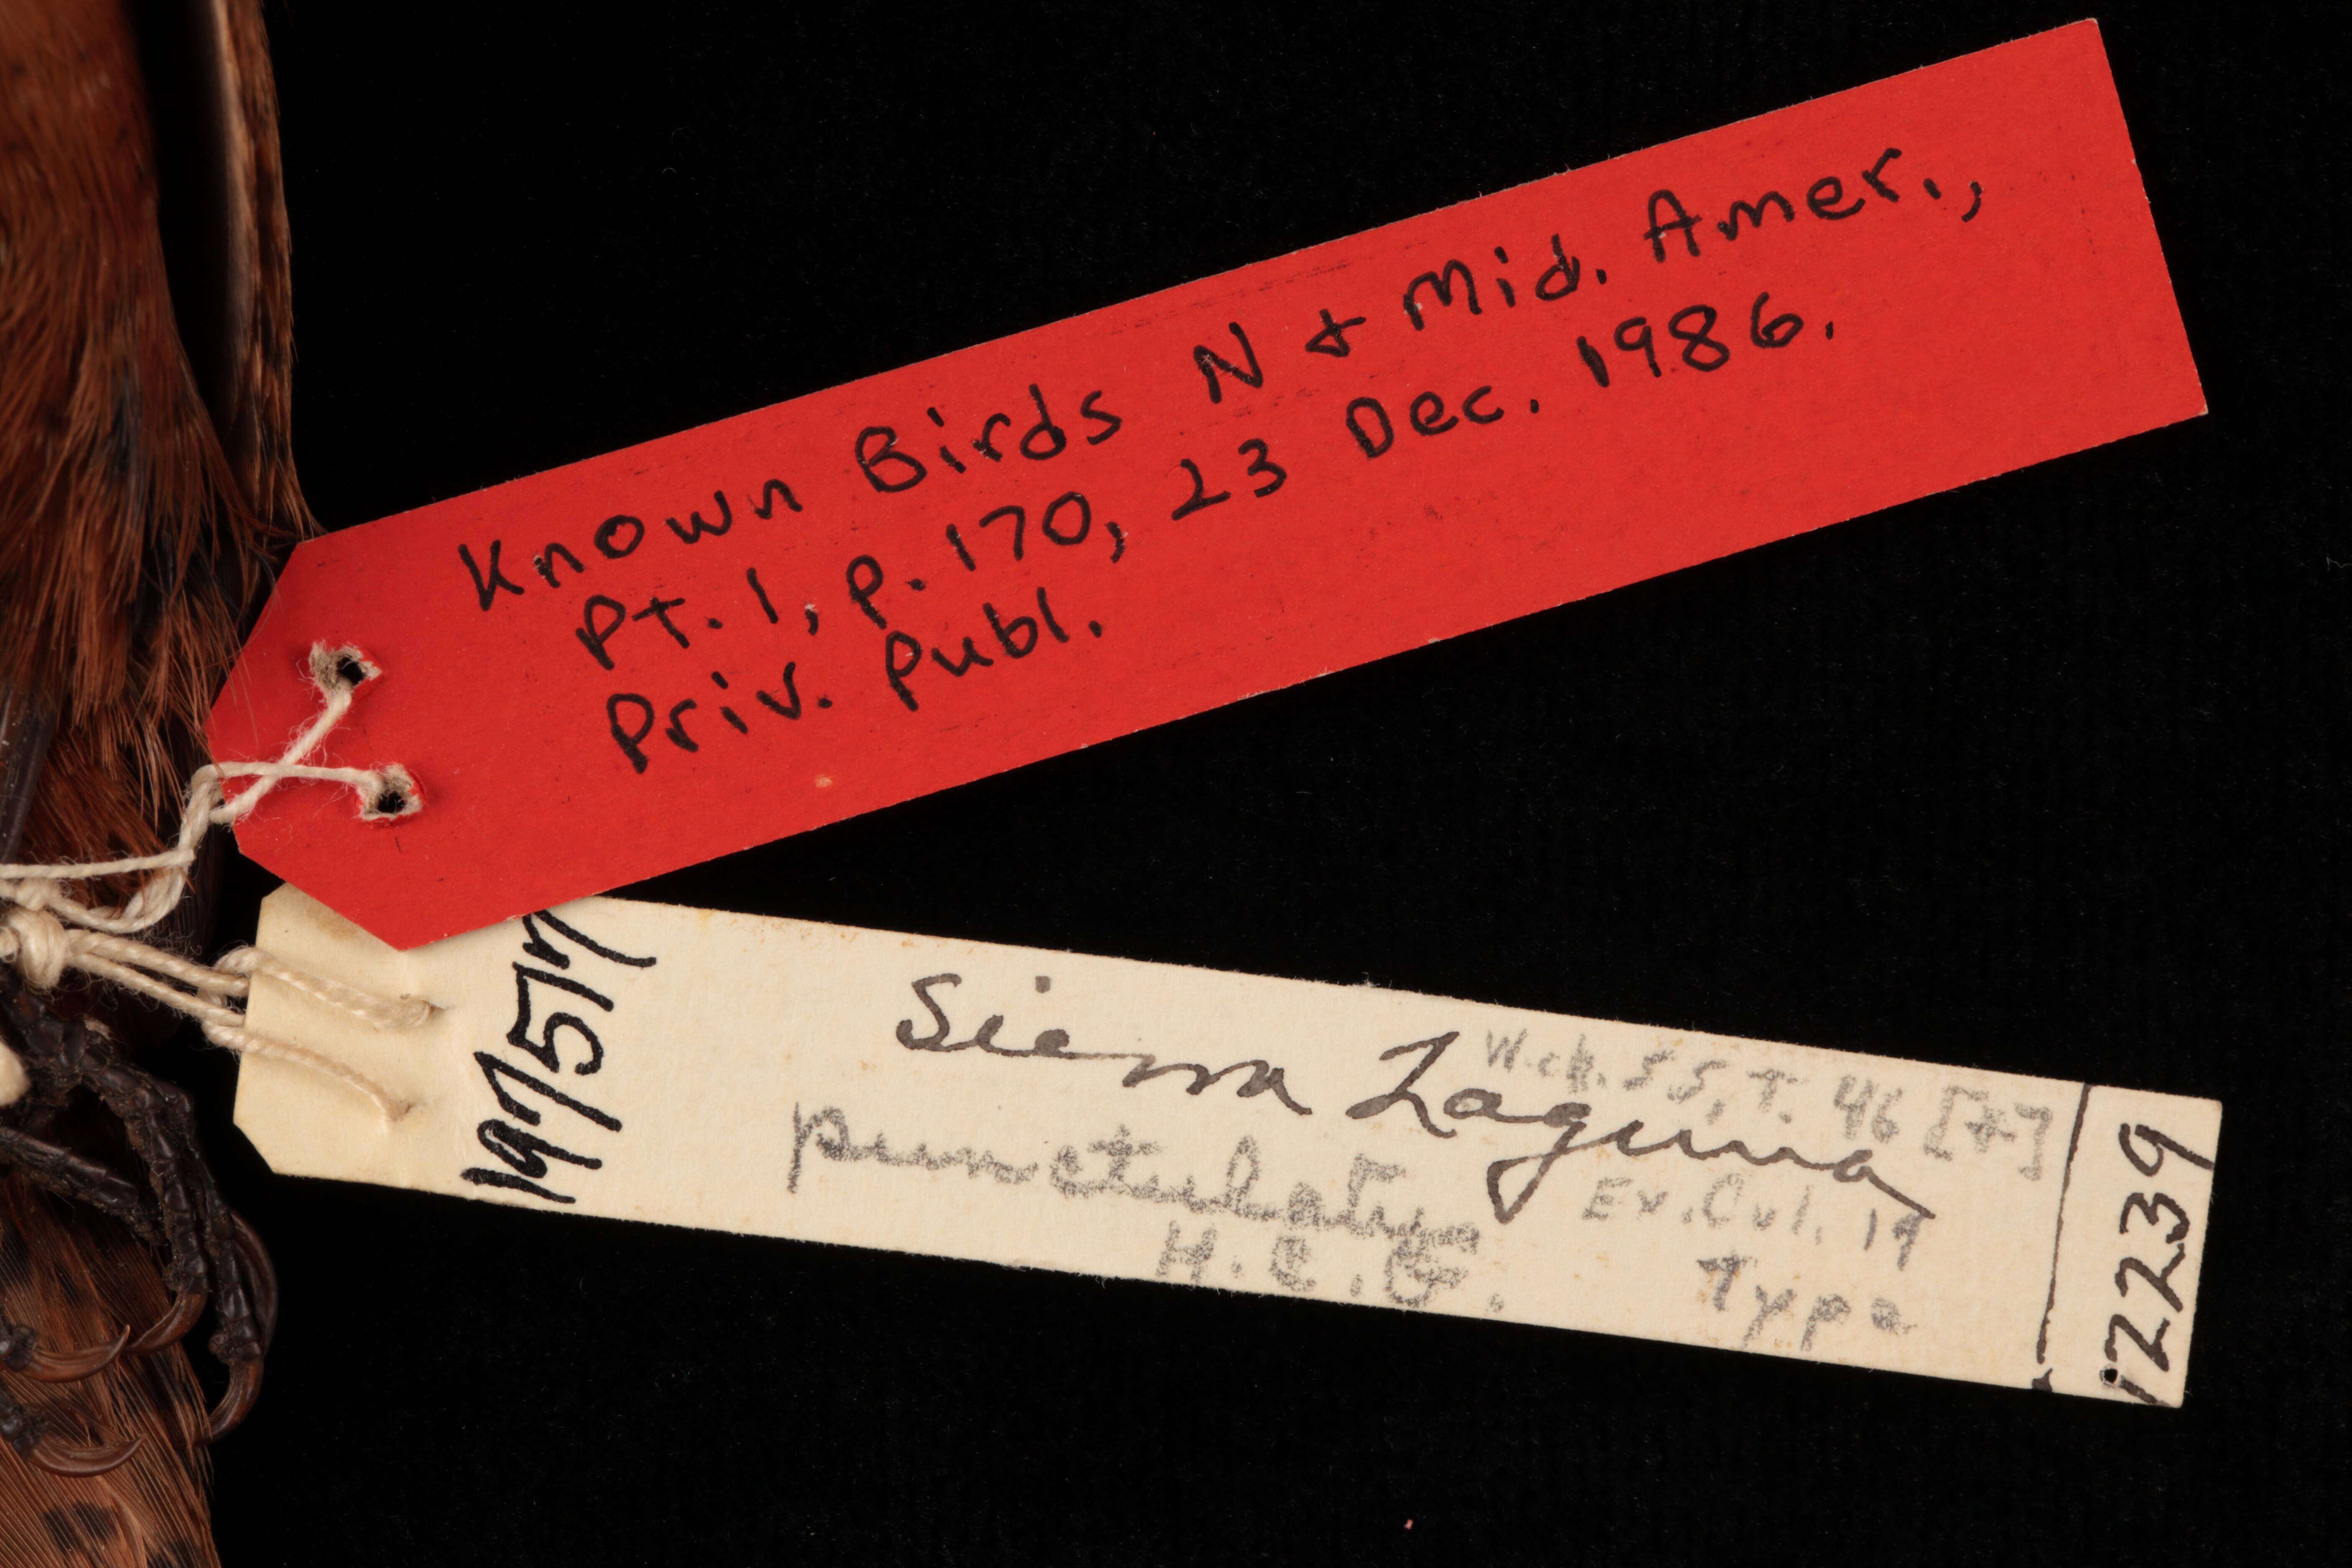 Known Birds N & Mid. Amer.,
Pt. 1, p. 170, 23 Dec. 1986.
Priv. Publ.
Sierra Laguna
T. 46
punctulatus
Ex. Cul. 19
H. C. O.
Type
12239